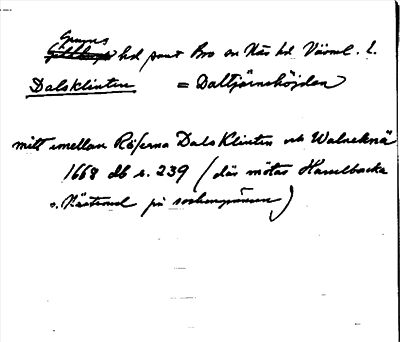 Grums
Gillbergs hd samt Bro o Näs hd Värml. l.
Dalsklinten = Daltjärnshöjden
mitt emellan Råserna DalsKlinten och Walneknä
1668 db s. 239 (där mötas Hasselbacka
o. Nästrand på sockengränsen)